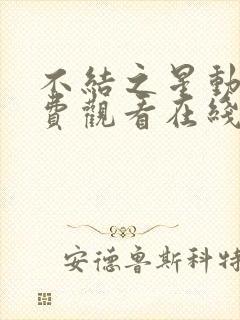 不結之星動
費觀看在綫
安德魯斯科特